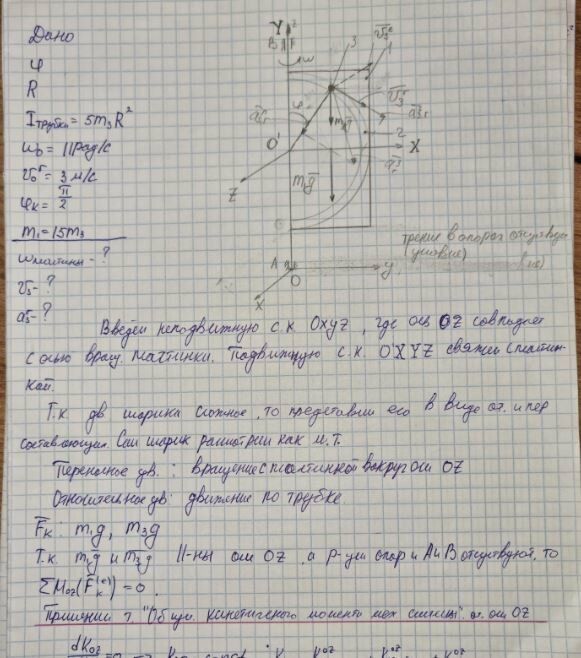 Дано
φ
R
I трубки = 5m₃R²
ω₀ = 11 рад/с
v₀ʳ = 3 м/с
φк = π/2
m₁ = 15m₃
ω пластины - ?
v₃ - ?
a₃ - ?
Y z
B
ω
3
1
φ
m₃g
2
O'
X
Z
m₁g
A
O
y
x
трение в опорах отсутств
(условие)
Введем неподвижную с.к. Oxyz, где ось OZ совпадает
с осью вращ. пластинки. Подвижную с.к. O'XYZ свяжем с пластин-
кой.
Т.к дв шарика сложное, то представим его в виде от. и пер
составляющих. Сам шарик рассмотрим как м.т.
Переносное дв.: вращение с пластинкой вокруг оси OZ
Относительное дв: движение по трубке.
F̄к: m₁g, m₃g
Т.к. m₁g и m₃g ||-ны оси OZ, а р-ции опор и A и B отсутствуют, то
ΣMoz(F̄к⁽ᵉ⁾) = 0.
Применим т. "Об изм. кинетического момента мех системы" от. оси OZ
dKoz